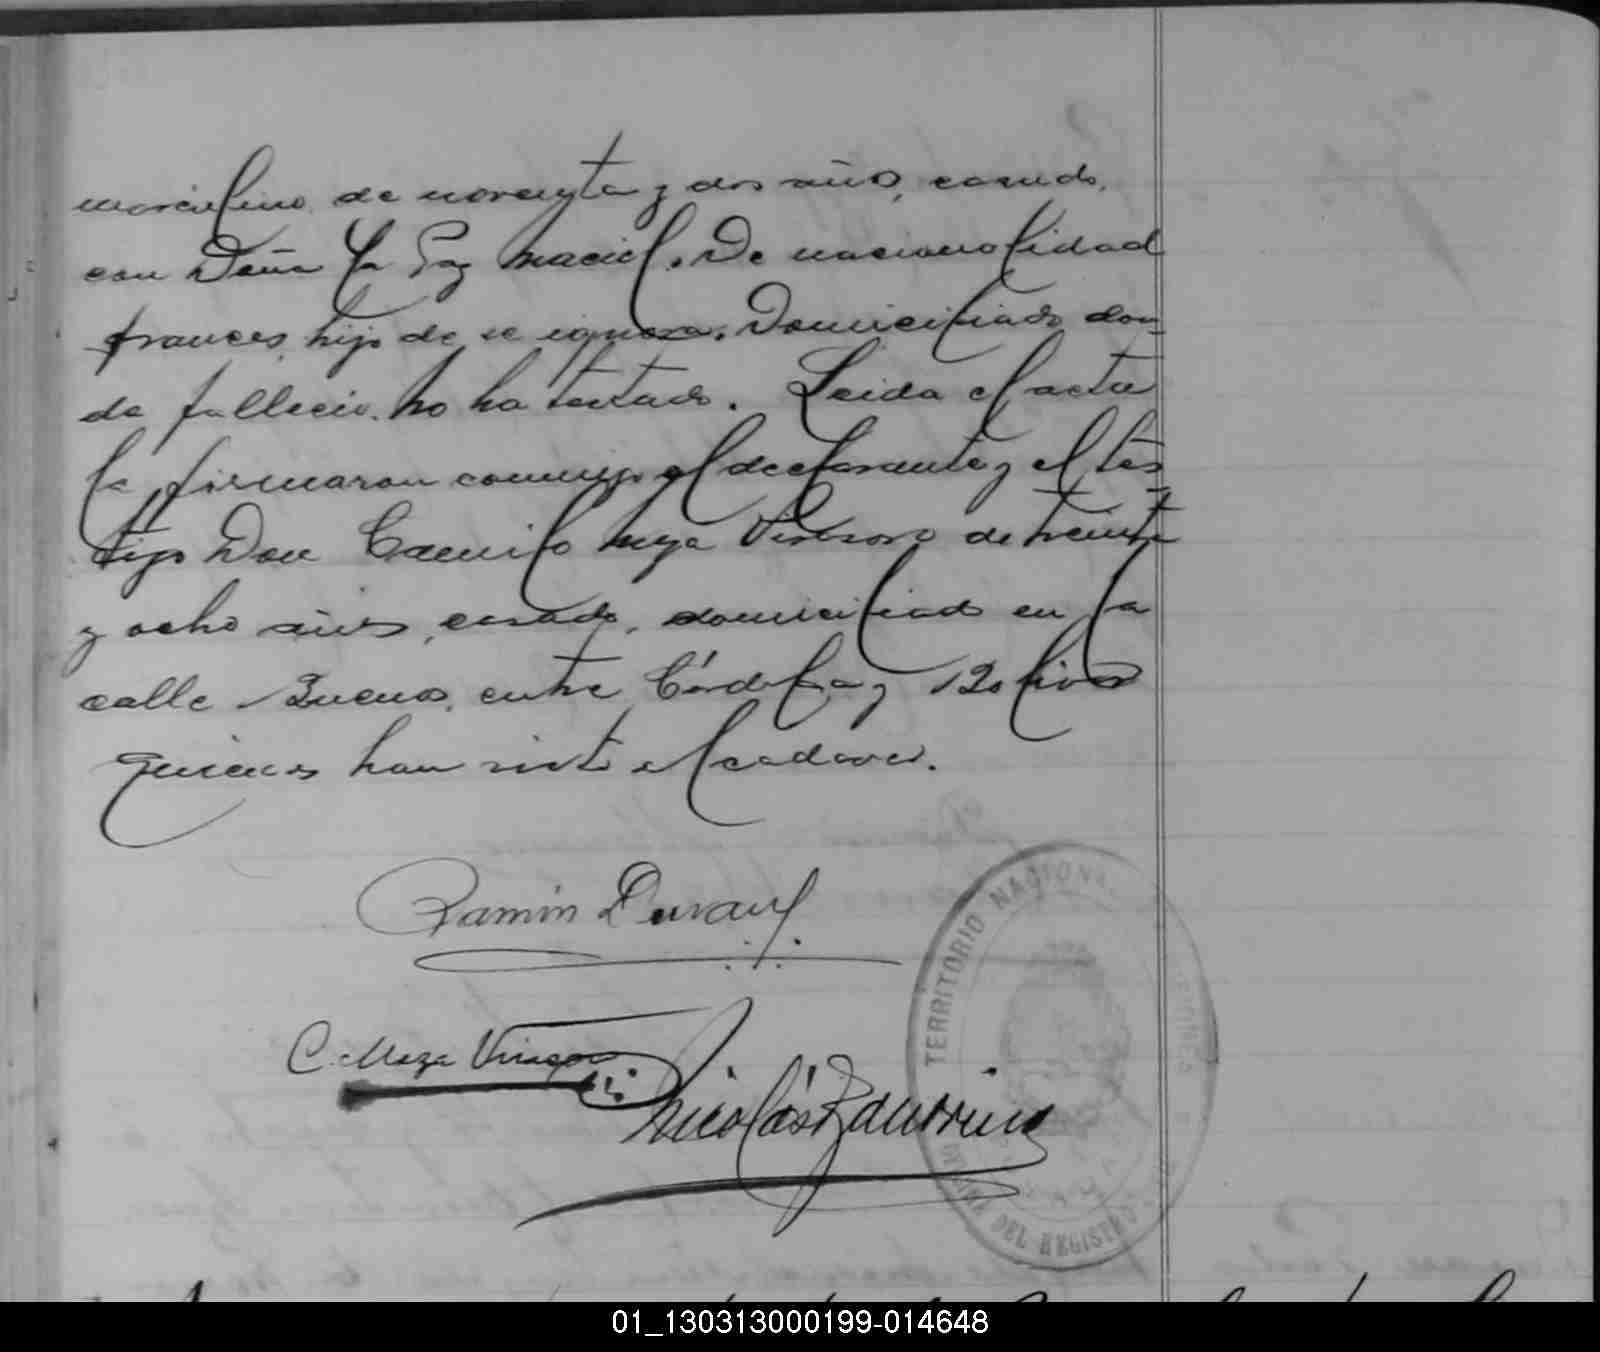 masculino, de noventa y dos años, casado,
con Doña La Paz Maciel. De nacionalidad
frances, hijo de se ignora. Domiciliado don-
de fallecio. No ha testado. Leida el acta
la firmaron conmigo el declarante y el tes-
tigo Don Camilo Meza Virasoro de treinta
y ocho años, casado, domiciliado en la
calle Buenos, entre Córdoba y Bolivar
quienes han visto el cadaver.
Ramón Durand
C. Meza Virasoro
Nicolás
TERRITORIO NACIONAL MISIONES
DEL REGISTRO
01_130313000199-014648